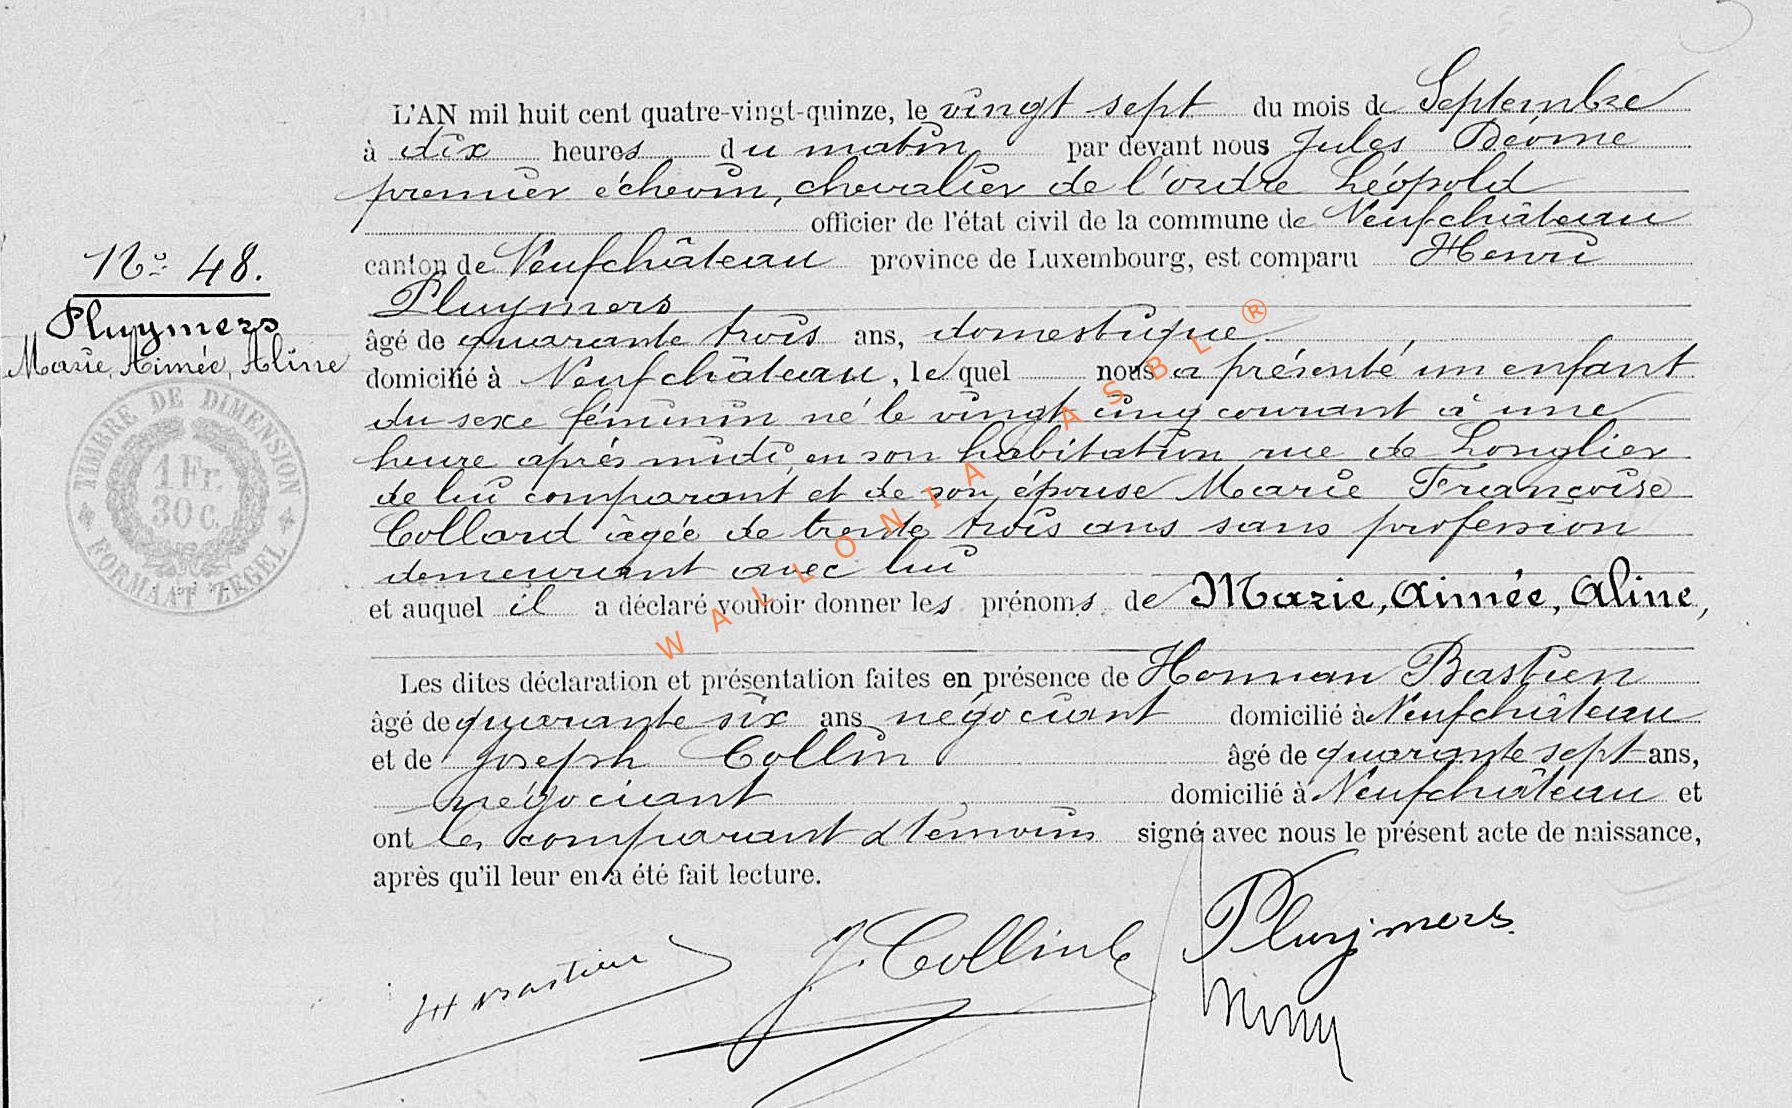 L'AN mil huit cent quatre-vingt-quinze, le vingt sept du mois de Septembre
à dix heures du matin par devant nous Jules Déome
premier échevin, chevalier de l'ordre Léopold
officier de l'état civil de la commune de Neufchâteau
No 48.
canton de Neufchâteau province de Luxembourg, est comparu Henri
Pluymers
Pluymers
âgé de quarante trois ans, domestique
Marie, Aimée, Aline
domicilié à Neufchâteau, lequel nous a présenté un enfant
du sexe féminin né le vingt cinq courant à une
heure après midi, en son habitation rue de Longlier
de lui comparant et de son épouse Marie Françoise
Collard âgée de trente trois ans sans profession
demeurant avec lui
et auquel il a déclaré vouloir donner les prénoms de Marie, Aimée, Aline,
TIMBRE DE DIMENSION
1 Fr.
30 C.
FORMAAT ZEGEL
WALLONIA ASBL ®
Les dites déclaration et présentation faites en présence de Hennan Bastien
âgé de quarante six ans négociant domicilié à Neufchâteau
et de Joseph Collin âgé de quarante sept ans,
négociant domicilié à Neufchâteau et
ont les comparant & témoins signé avec nous le présent acte de naissance,
après qu'il leur en a été fait lecture.
H Bastien J. Collin Pluymers